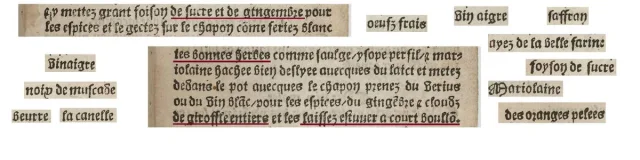 & y mettez grant foison de sucre et de gingembre pour
les espices et le gectez sur le chapon cōme seriez blanc
oeufz frais
vin aigre
saffran
vinaigre
ayez de la belle farine
foyson de sucre
noix de muscade
Mariolaine
beurre
la canelle
des oranges pelees
les bonnes herbes comme saulge / ysope persil / & mar⸗
iolaine hachee bien deslyee auecques du laict et metez
dedans le pot auecques le chapon prenez du verius
ou du vin blāc / pour les espices / du gingēbre & clouds
de giroffle entiers et les laissez estuuer a court boullō.